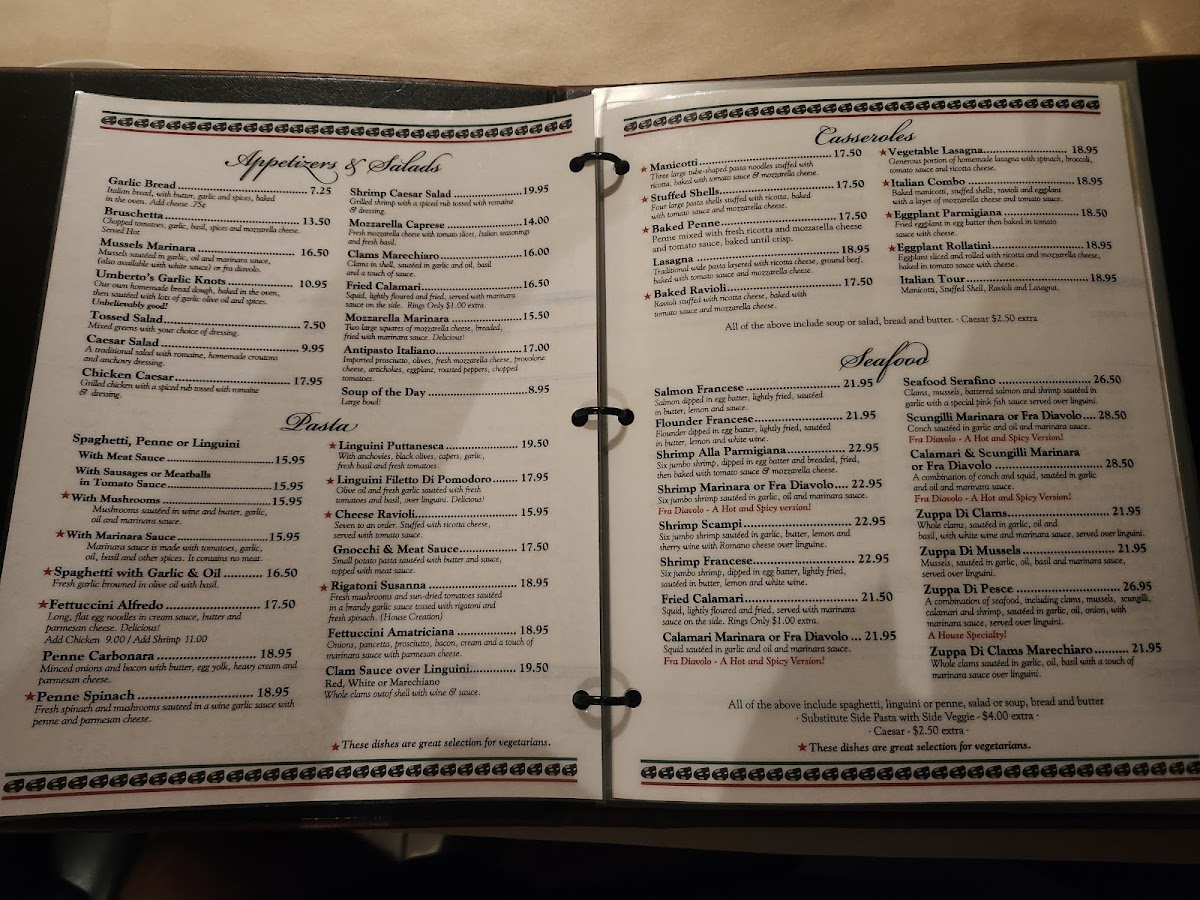 Appetizers & Salads
Garlic Bread 7.25
Italian bread, with butter, garlic and spices, baked
in the oven. Add cheese .75¢
Bruschetta 13.50
Chopped tomatoes, garlic, basil, spices and mozzarella cheese.
Served Hot
Mussels Marinara 16.50
Mussels sautéed in garlic, oil and marinara sauce,
(also available with white sauce) or fra diavolo.
Umberto's Garlic Knots 10.95
Our own homemade bread dough, baked in the oven,
then sautéed with lots of garlic olive oil and spices.
Unbelievably good!
Tossed Salad 7.50
Mixed greens with your choice of dressing.
Caesar Salad 9.95
A traditional salad with romaine, homemade croutons
and anchovy dressing.
Chicken Caesar 17.95
Grilled chicken with a spiced rub tossed with romaine
& dressing.
Shrimp Caesar Salad 19.95
Grilled shrimp with a spiced rub tossed with romaine
& dressing.
Mozzarella Caprese 14.00
Fresh mozzarella cheese with tomato slices, Italian seasonings
and fresh basil.
Clams Marechiaro 16.00
Clams in shell, sautéed in garlic and oil, basil
and a touch of sauce.
Fried Calamari 16.50
Squid, lightly floured and fried, served with marinara
sauce on the side. Rings Only $1.00 extra.
Mozzarella Marinara 15.50
Two large squares of mozzarella cheese, breaded,
fried with marinara sauce. Delicious!
Antipasto Italiano 17.00
Imported prosciutto, olives, fresh mozzarella cheese, provolone
cheese, artichokes, eggplant, roasted peppers, chopped
tomatoes.
Soup of the Day 8.95
Large bowl!
Pasta
Spaghetti, Penne or Linguini
With Meat Sauce 15.95
With Sausages or Meatballs
in Tomato Sauce 15.95
★With Mushrooms 15.95
Mushrooms sautéed in wine and butter, garlic,
oil and marinara sauce.
★With Marinara Sauce 15.95
Marinara sauce is made with tomatoes, garlic,
oil, basil and other spices. It contains no meat.
★Spaghetti with Garlic & Oil 16.50
Fresh garlic browned in olive oil with basil.
★Fettuccini Alfredo 17.50
Long, flat egg noodles in cream sauce, butter and
parmesan cheese. Delicious!
Add Chicken 9.00 / Add Shrimp 11.00
Penne Carbonara 18.95
Minced onions and bacon with butter, egg yolk, heavy cream and
parmesan cheese.
★Penne Spinach 18.95
Fresh spinach and mushrooms sauteed in a wine garlic sauce with
penne and parmesan cheese.
★Linguini Puttanesca 19.50
With anchovies, black olives, capers, garlic,
fresh basil and fresh tomatoes.
★Linguini Filetto Di Pomodoro 17.95
Olive oil and fresh garlic sautéed with fresh
tomatoes and basil, over linguini. Delicious!
★Cheese Ravioli 15.95
Seven to an order. Stuffed with ricotta cheese,
served with tomato sauce.
Gnocchi & Meat Sauce 17.50
Small potato pasta sautéed with butter and sauce,
topped with meat sauce.
★Rigatoni Susanna 18.95
Fresh mushrooms and sun-dried tomatoes sautéed
in a brandy garlic sauce tossed with rigatoni and
fresh spinach. (House Creation)
Fettuccini Amatriciana 18.95
Onions, pancetta, prosciutto, bacon, cream and a touch of
marinara sauce with parmesan cheese.
Clam Sauce over Linguini 19.50
Red, White or Marechiano
Whole clams outof shell with wine & sauce.
★These dishes are great selection for vegetarians.
Casseroles
★Manicotti 17.50
Three large tube-shaped pasta noodles stuffed with
ricotta, baked with tomato sauce & mozzarella cheese.
★Stuffed Shells 17.50
Four large pasta shells stuffed with ricotta, baked
with tomato sauce and mozzarella cheese.
★Baked Penne 17.50
Penne mixed with fresh ricotta and mozzarella cheese
and tomato sauce, baked until crisp.
Lasagna 18.95
Traditional wide pasta layered with ricotta cheese, ground beef,
baked with tomato sauce and mozzarella cheese.
★Baked Ravioli 17.50
Ravioli stuffed with ricotta cheese, baked with
tomato sauce and mozzarella cheese.
★Vegetable Lasagna 18.95
Generous portion of homemade lasagna with spinach, broccoli,
tomato sauce and ricotta cheese.
★Italian Combo 18.95
Baked manicotti, stuffed shells, ravioli and eggplant
with a layer of mozzarella cheese and tomato sauce.
★Eggplant Parmigiana 18.50
Fried eggplant in egg batter then baked in tomato
sauce with cheese.
★Eggplant Rollatini 18.95
Eggplant sliced and rolled with ricotta and mozzarella cheese,
baked in tomato sauce with cheese.
Italian Tour 18.95
Manicotti, Stuffed Shell, Ravioli and Lasagna.
All of the above include soup or salad, bread and butter. · Caesar $2.50 extra
Seafood
Salmon Francese 21.95
Salmon dipped in egg batter, lightly fried, sautéed
in butter, lemon and sauce.
Flounder Francese 21.95
Flounder dipped in egg batter, lightly fried, sautéed
in butter, lemon and white wine.
Shrimp Alla Parmigiana 22.95
Six jumbo shrimp, dipped in egg batter and breaded, fried,
then baked with tomato sauce & mozzarella cheese.
Shrimp Marinara or Fra Diavolo 22.95
Six jumbo shrimp sautéed in garlic, oil and marinara sauce.
Fra Diavolo - A Hot and Spicy version!
Shrimp Scampi 22.95
Six jumbo shrimp sautéed in garlic, butter, lemon and
sherry wine with Romano cheese over linguini.
Shrimp Francese 22.95
Six jumbo shrimp, dipped in egg batter, lightly fried,
sautéed in butter, lemon and white wine.
Fried Calamari 21.50
Squid, lightly floured and fried, served with marinara
sauce on the side. Rings Only $1.00 extra.
Calamari Marinara or Fra Diavolo 21.95
Squid sautéed in garlic, oil and marinara sauce.
Fra Diavolo - A Hot and Spicy Version!
Seafood Serafino 26.50
Clams, mussels, battered salmon and shrimp sautéed in
garlic with a special pink fish sauce served over linguini.
Scungilli Marinara or Fra Diavolo 28.50
Conch sautéed in garlic, oil and marinara sauce.
Fra Diavolo - A Hot and Spicy Version!
Calamari & Scungilli Marinara
or Fra Diavolo 28.50
A combination of conch and squid, sautéed in garlic
and oil and marinara sauce.
Fra Diavolo - A Hot and Spicy Version!
Zuppa Di Clams 21.95
Whole clams, sautéed in garlic, oil and
basil, with white wine and marinara sauce, served over linguini.
Zuppa Di Mussels 21.95
Mussels, sautéed in garlic, oil, basil and marinara sauce,
served over linguini.
Zuppa Di Pesce 26.95
A combination of seafood, including clams, mussels, scungilli,
calamari and shrimp, sautéed in garlic, oil, onion, with
marinara sauce, served over linguini.
A House Specialty!
Zuppa Di Clams Marechiaro 21.95
Whole clams sautéed in garlic, oil, basil with a touch of
marinara sauce over linguini.
All of the above include spaghetti, linguini or penne, salad or soup, bread and butter
· Substitute Side Pasta with Side Veggie - $4.00 extra ·
· Caesar - $2.50 extra ·
★These dishes are great selection for vegetarians.